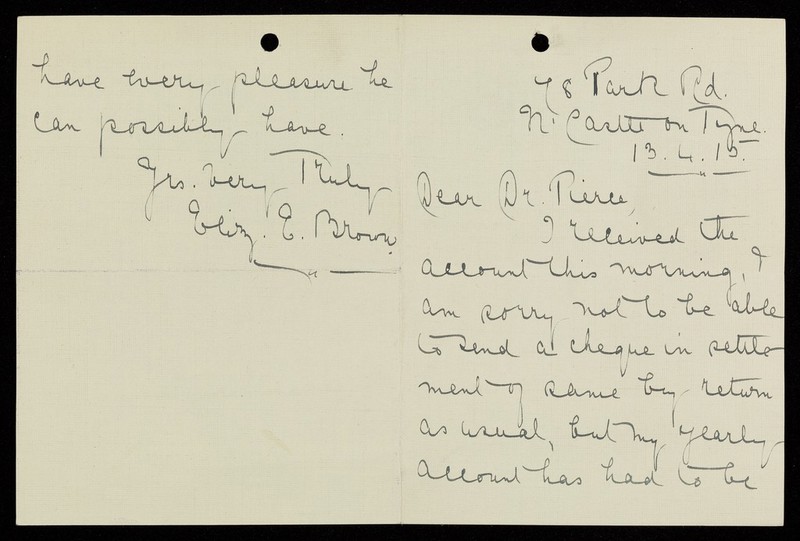 have every pleasure he
can possibly have.
Yrs. very Truly
Eliz. E. Brown.
78 Park Rd.
N. Castle on Tyne.
13.4.15.
Dear Dr. Pierce,
I received the
account this morning, I
am sorry not to be able
to send a cheque in settle
ment of same by return
as usual, but my yearly
account has had to be